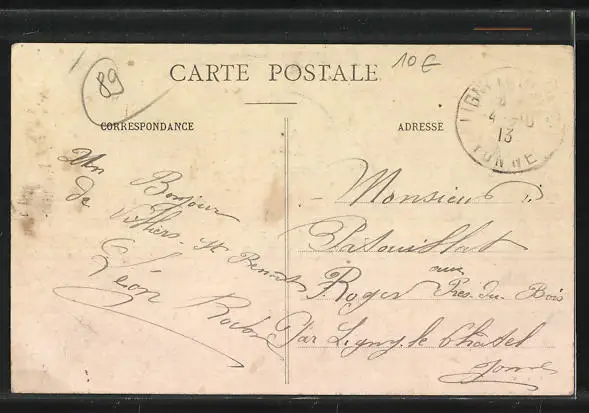 89
CARTE POSTALE
10€
CORRESPONDANCE
ADRESSE
LIGNY
4 - 10
13
YONNE
Un Bonjour
de Villiers-St Benoit
Léon
Monsieur
Patouillat
Roger aux Près-du-Bois
Par Ligny-le-Châtel
Yonne